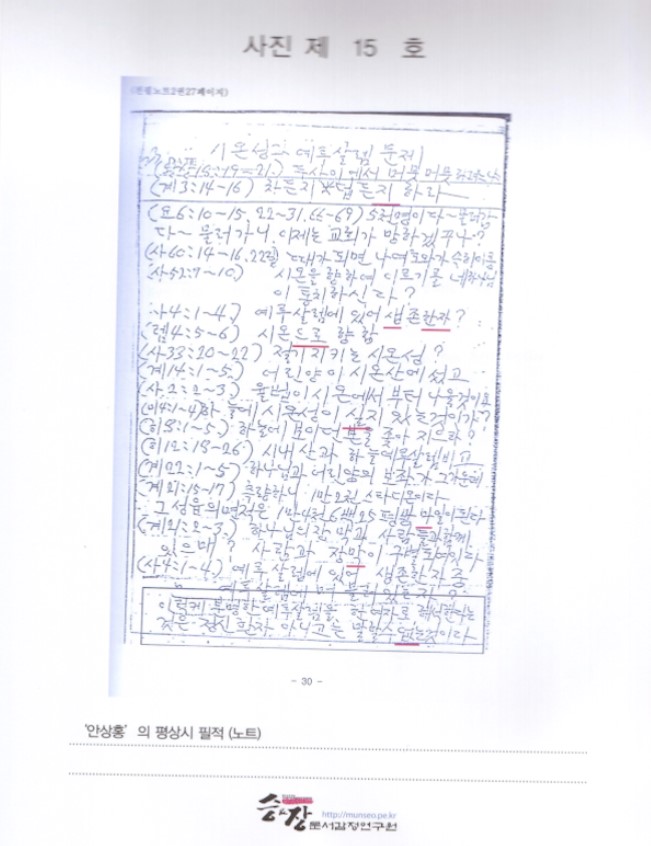 사진 제 15 호
(친필노트2권27페이지)
시온성과 예루살렘 문제
15:19=21.) 두 사이에서 머뭇머뭇
(계3:14-16) 차든지 덥든지 하라
(요6:10-15, 22-31, 66-69) 5천명이 다 물러갔
다 물러가니 이제는 교회가 망하겠꾸나?
(사60:14-16, 22절 때가 되면 나 여호와가 속히 이룸
사52:7-10.) 시온을 향하여 이르기를 네 하나님
이 통치하신다?
사4:1-4.) 예루살렘에 있어 생존한자?
(렘4:5-6) 시온으로 향함
(사33:20-22) 절기 지키는 시온성?
(계14:1-5.) 어린양이 시온산에 섰고
(사.2:2-3.) 율법이 시온에서부터 나올것이요
(미4:1-4) 하늘에 시온성이 실지 있는것이가?
(히8:1-5.) 하늘에 보이던 본을 좇아 지으라?
(히12:18-26.) 시내산과 하늘예루살렘비교
(계22:1-5) 하나님과 어린양의 보좌가 그 가운데
(계21:15-17) 측량하니 1만2천 스타디온이라
그 성읍의 면적은 1만4천6백25평방 마일이 된다
(계21:2-3.) 하나님의 장막과 사람들과 함께
있으매? 사람과 장막이 구별되어있다
(사4:1-4) 예루살렘에 있어 생존한자 중
예루살렘에 머물러 있는자?
이렇케 분명한 예루살렘을 한 여자로 해석한다는
것은 정신환자 아니고는 말할수 없는것이라
- 30 -
'안상홍' 의 평상시 필적 (노트)
승소장
http://munseo.pe.kr
문서감정연구원